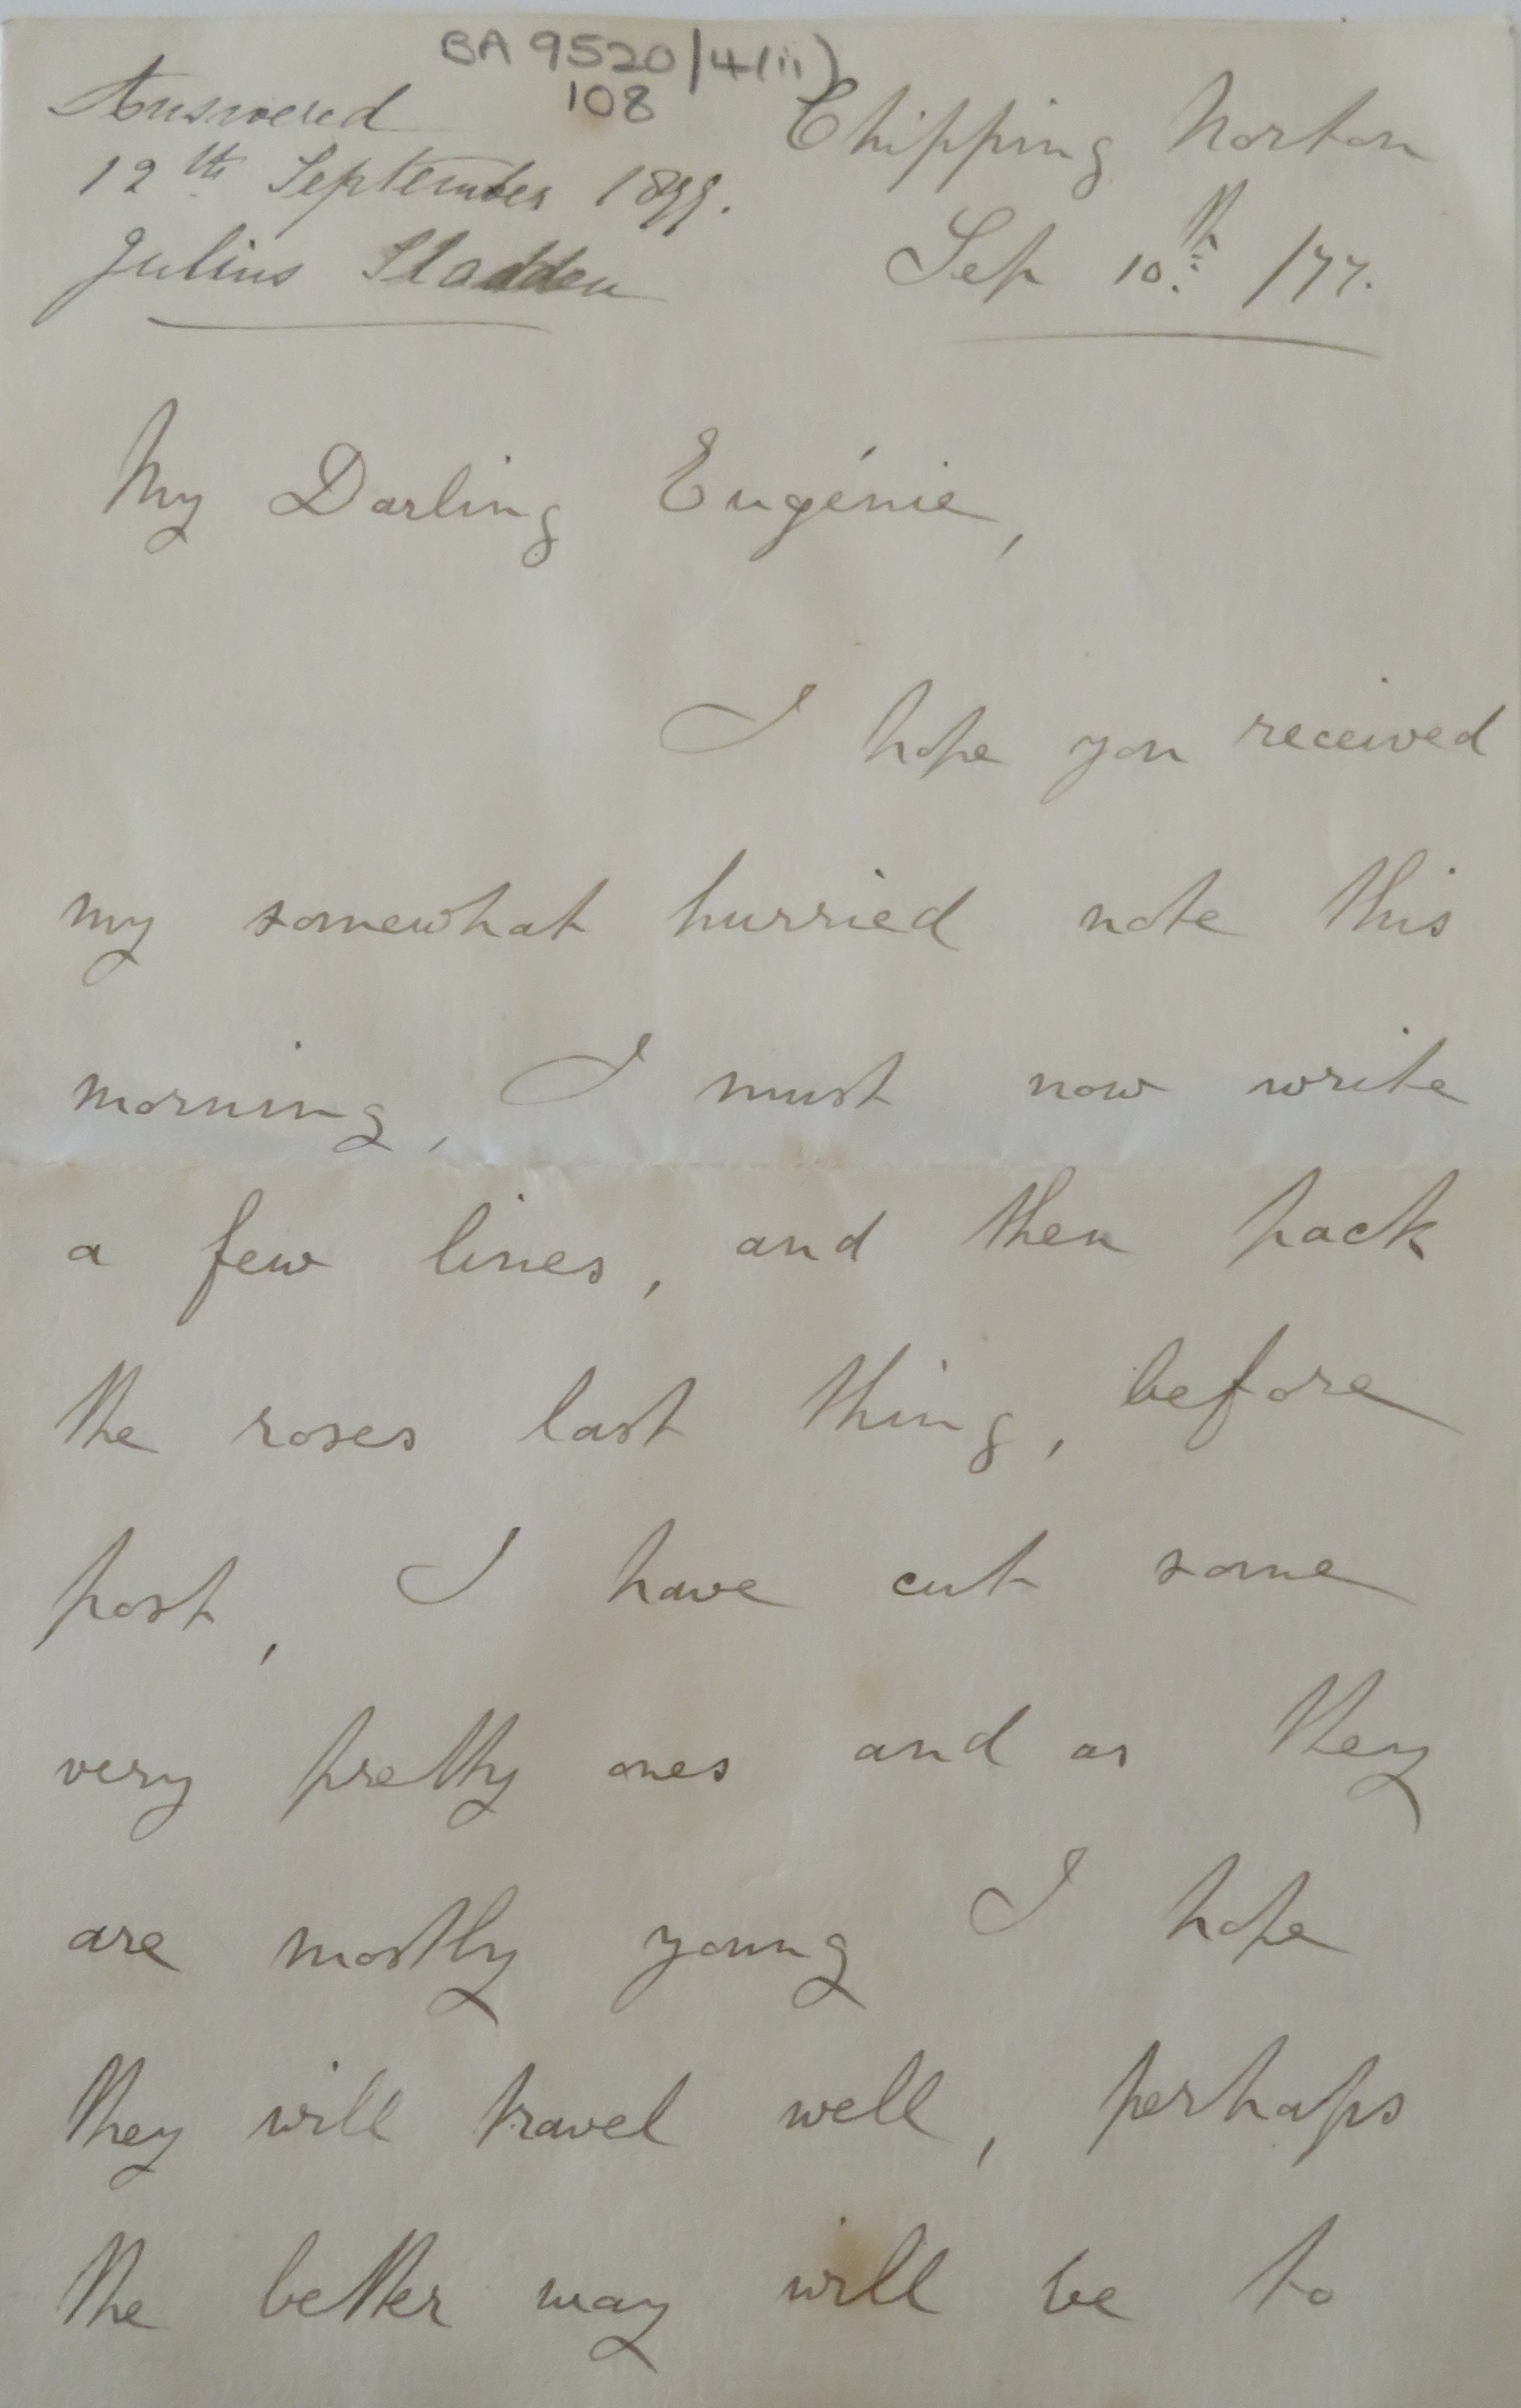 BA 9520/4(ii)
108
Answered
12th September 1877.
Julius Sladden
Chipping Norton
Sep 10th /77.
My Darling Eugénie,
I hope you received
my somewhat hurried note this
morning, I must now write
a few lines, and then pack
the roses last thing, before
post, I have cut some
very pretty ones and as they
are mostly young I hope
they will travel well, perhaps
the better way will be to